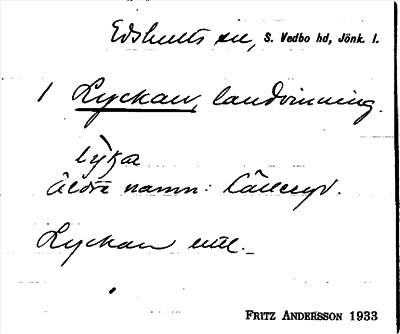 Edshults sn, S. Vedbo hd, Jönk. l.
1 Lyckan, landvinning.
lỳka
Äldre namn:
Lyckan utl.
FRITZ ANDERSSON 1933